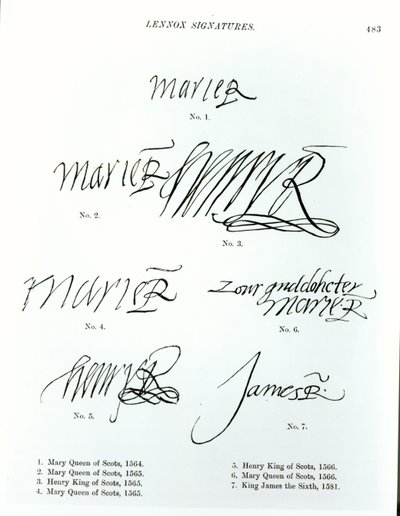 LENNOX SIGNATURES. 483
Marie R
No. 1.
Marie R Henry R
No. 2.
No. 3.
Marie R
No. 4.
zour guddohcter
Marie R
No. 6.
Henry R
No. 5.
James R.
No. 7.
1. Mary Queen of Scots, 1564.
2. Mary Queen of Scots, 1565.
3. Henry King of Scots, 1565.
4. Mary Queen of Scots, 1565.
5. Henry King of Scots, 1566.
6. Mary Queen of Scots, 1566.
7. King James the Sixth, 1581.